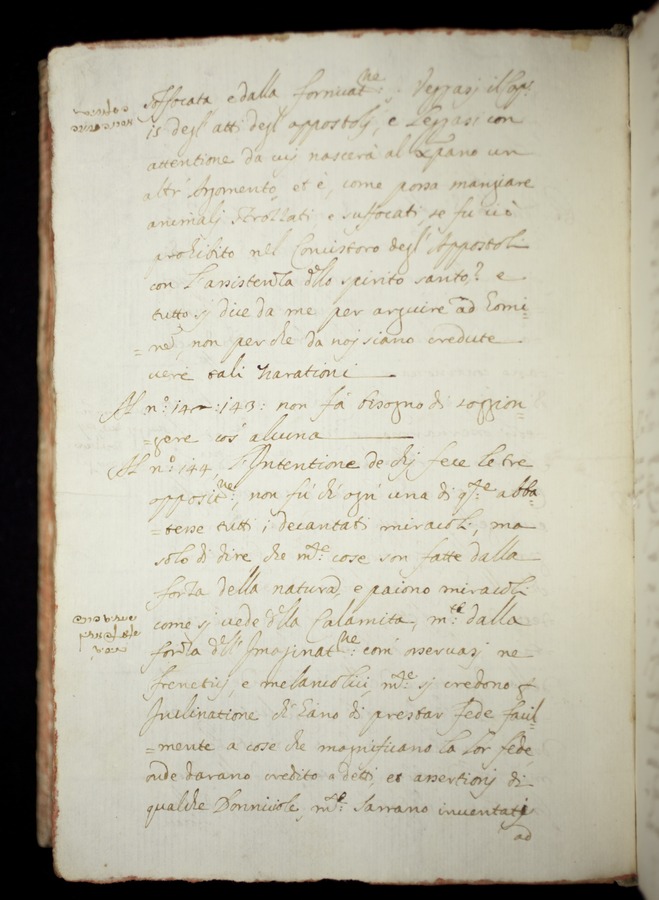 soffocata e dalla fornicat:ne. Veggasi il cap:
15 degl' atti degl' appostolj, e Leggasi con
attentione da cuj nascerà al Xpano un
altr' Argomento, et è, come possa mangiare
animalj strozzati e suffocati, se fu ciò
prohibito nel Concistoro degl' Appostoli
con l'assistenza dello spirito santo? e
tutto sj dice da me per arguire ad homi-
=nem, non perchè da noj siano credute
vere tali Narationi
Al n.o: 142:143: non fà bisogno di soggion-
=gere cos' alcuna
Al n.o 144. L'Intentione de chj fece le tre
opposit:ne, non fù ch' ogn' una di q.te abba-
=tesse tutti i decantati miracoli, ma
solo di dire che m.te cose son fatte dalla
forza della natura, e paiono miracoli
come sj vede della Calamita, m.te dalla
forza dell' Imaginat:ne: com' osservasj ne
frenetici, e melancolici, m.te sj credono p
Inclinatione ch' hano di prestar fede facil-
=mente a cose che magnificano la lor fede,
onde darano credito a detti, et assertionj di
qualche Donniciole, m.te sarrano inventatj
ad